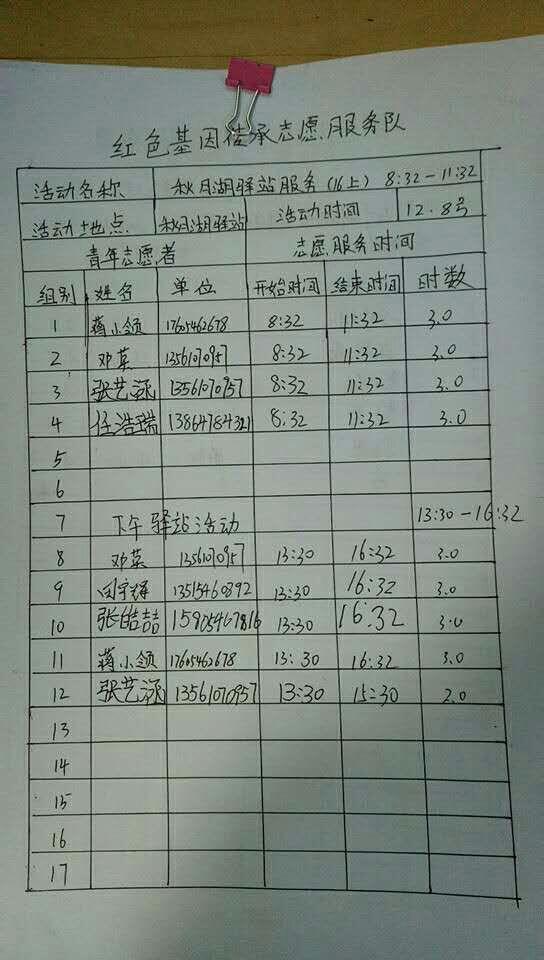 红色基因传承志愿服务队
活动名称 秋月湖驿站服务(16上) 8:32-11:32
活动地点 秋月湖驿站 活动时间 12.8号
青年志愿者 志愿服务时间
组别 姓名 单位 开始时间 结束时间 时数
1 蒋小领 17605462678 8:32 11:32 3.0
2 邓英 13561070957 8:32 11:32 3.0
3 张艺涵 13561070957 8:32 11:32 3.0
4 任浩瑞 13864784321 8:32 11:32 3.0
5
6
7 下午驿站活动 13:30-16:32
8 邓英 13561070957 13:30 16:32 3.0
9 13515460392 13:30 16:32 3.0
10 张皓喆 15905467816 13:30 16:32 3.0
11 蒋小领 17605462678 13:30 16:32 3.0
12 张艺涵 13561070957 13:30 15:30 2.0
13
14
15
16
17